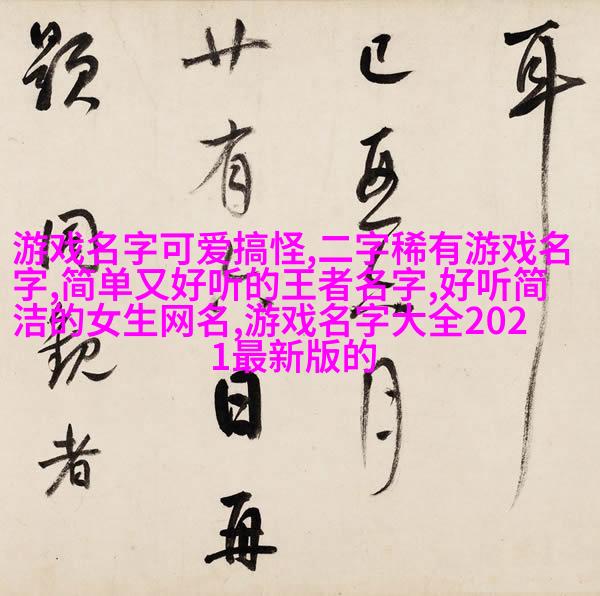 耳
已五月
廿有日再
題同觀者
游戏名字可爱搞怪,二字稀有游戏名
字,简单又好听的王者名字,好听简
洁的女生网名,游戏名字大全202
1最新版的